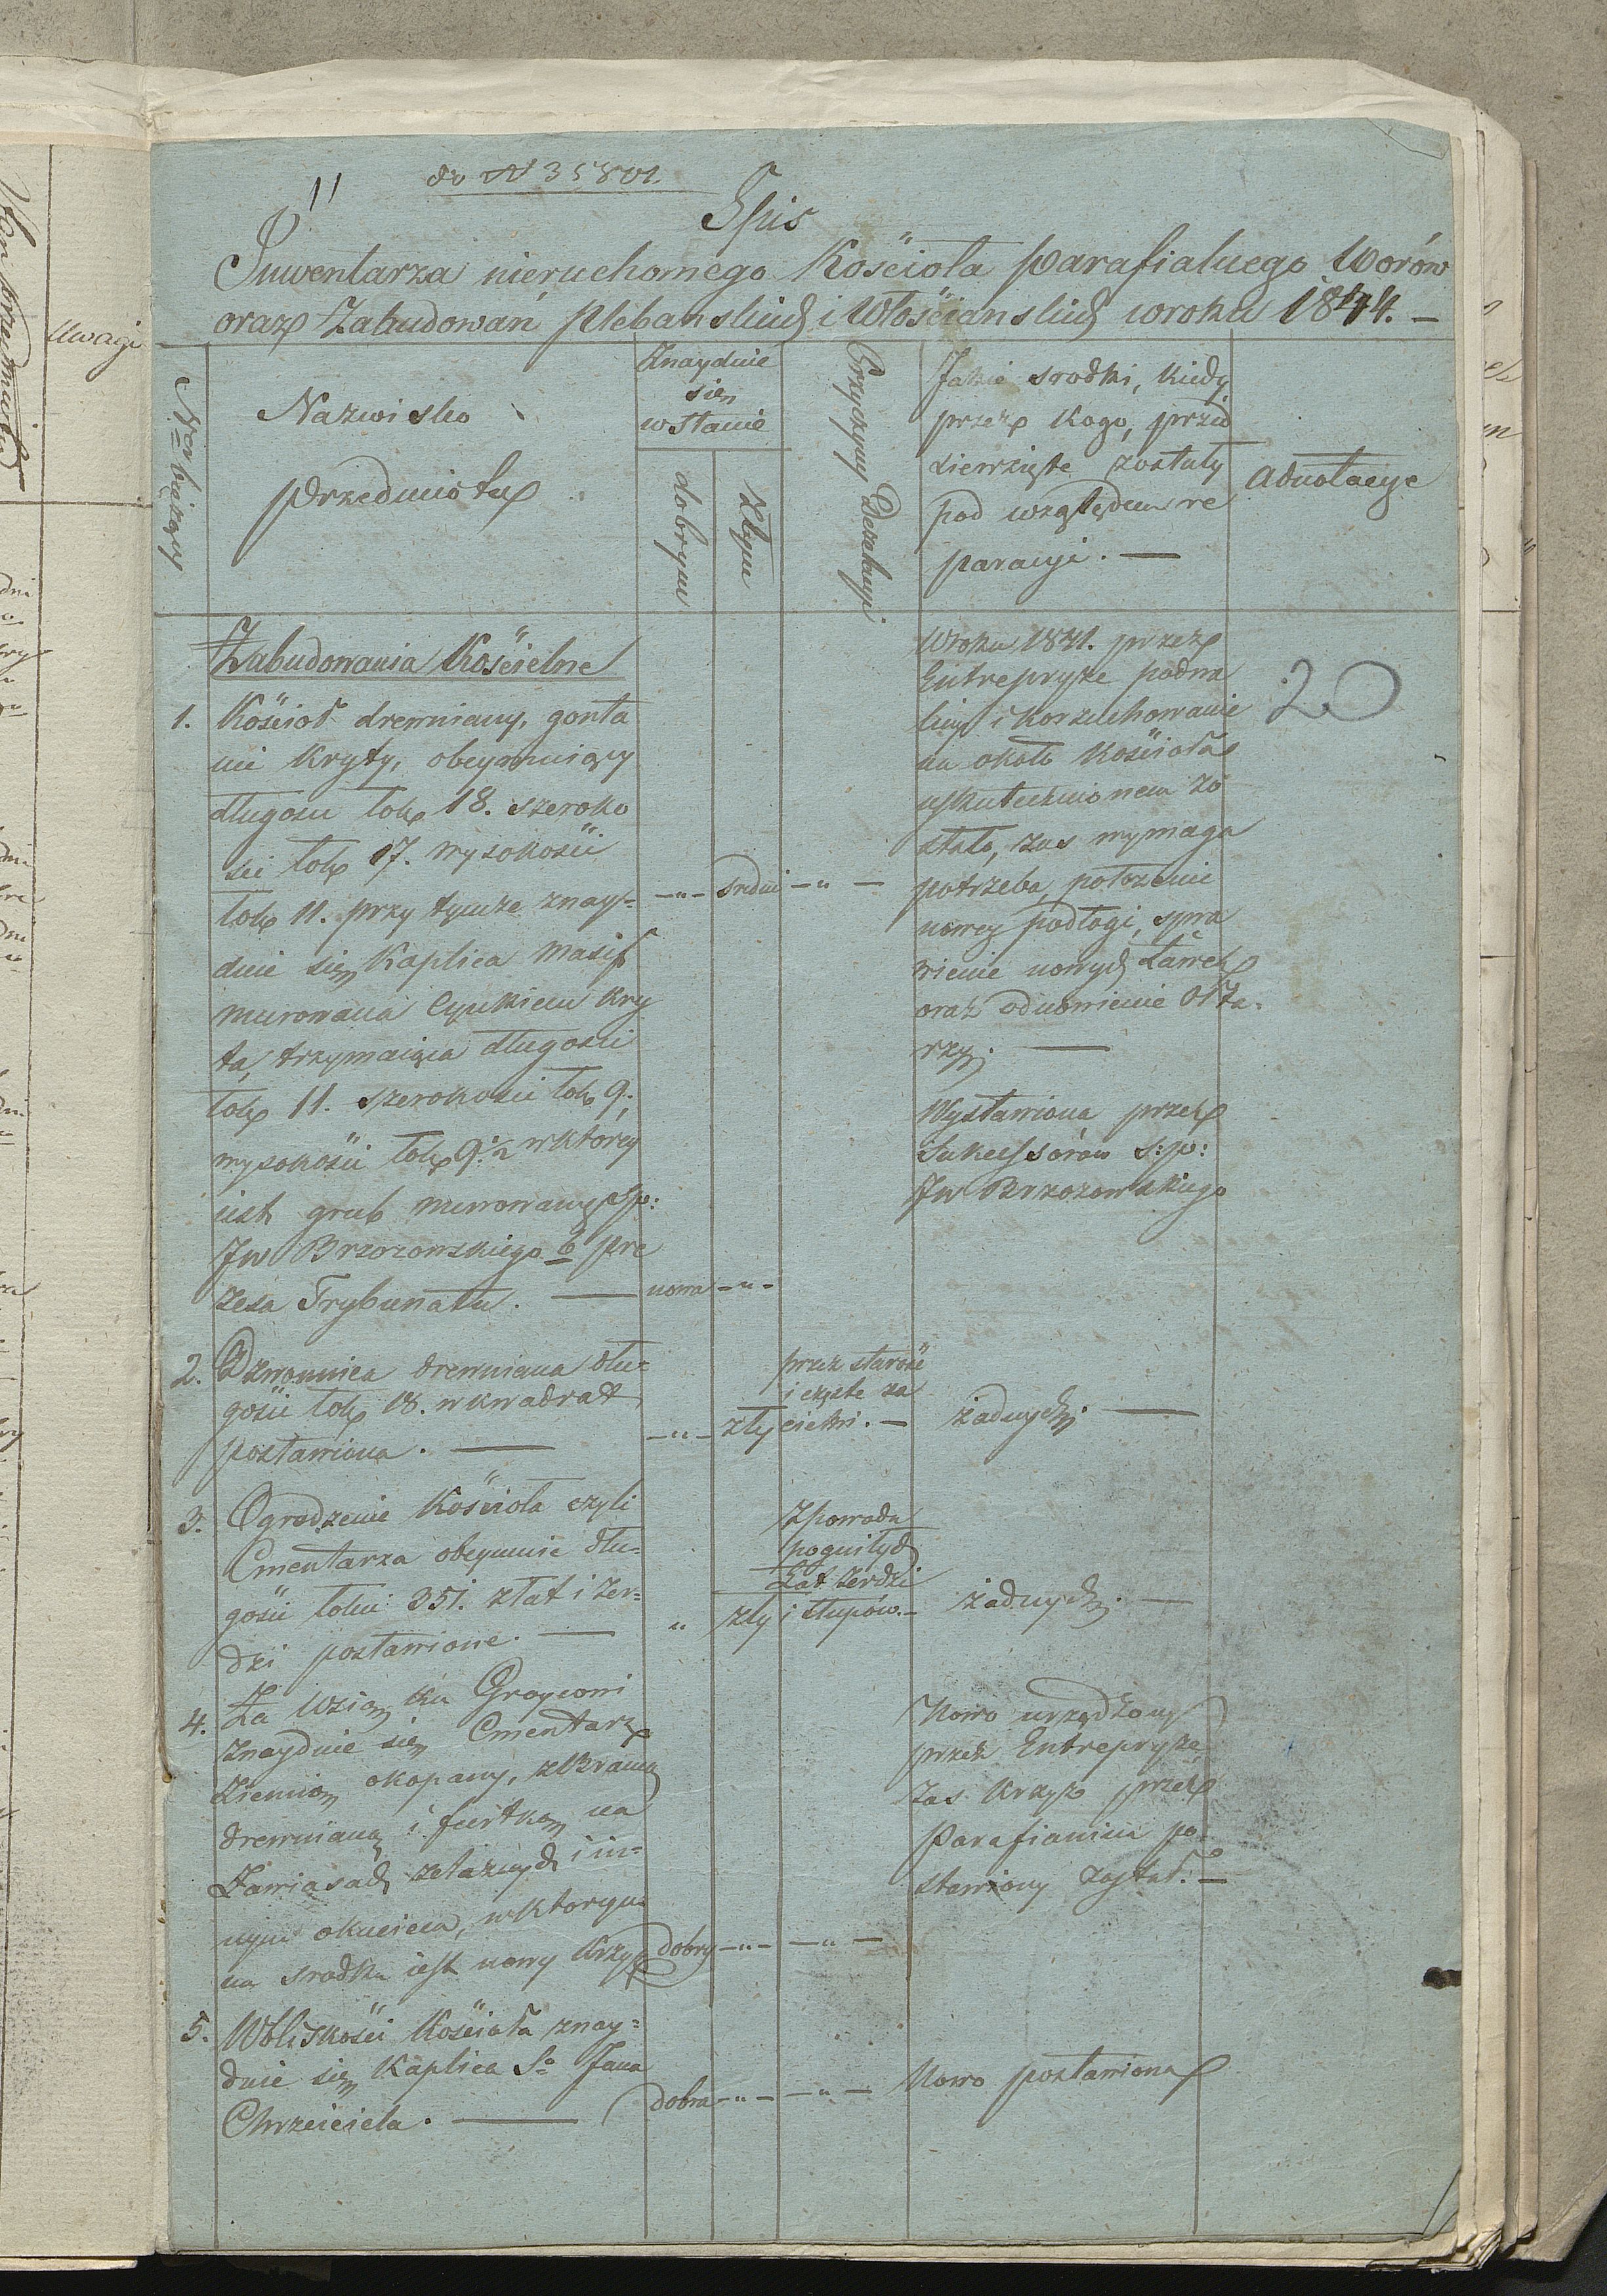 do N 35801.
11
Spis
Inwentarza nieruchomego Kościoła parafialnego Worów
oraz Zabudowań plebanskich i Włościanskich w roku 1844. —
Uwagi
Ner bieżący
Nazwisko
przedmiotu
Znayduie
się
w stanie
dobrym
złym
Przyczyny Dezolucyi
Jakie srodki, kiedy
przez kogo, przed
siewzięte zostały
pod względem re
paracyi. —
Adnotacye
Zabudowania Kościelne
1. Kościoł drewniany, gonta
mi kryty, obeymuiący
długości łok 18. szeroko
ści łok 17. wysokości
łok 11. przy tymże znay=
duie się Kaplica masif
murowana Cynkiem kry
ta, trzymaiąca długości
łok 11. szerokości łok 9.,
wysokości łok 9. ½ w ktorey
iest grub murowany sp:
Jw Brzozowskiego b pre
zesa Trybunału. —
— „ — sredni — „ —
nowa — „ —
W roku 1841. przez
Entrepryze podwa
liny i korzuchowanie
na około Kościoła
uskutecznionem zo
stało, zas wymaga
potrzeba położenie
nowey podłogi, spra
wienie nowych Ławek
oraz odnowienie Ołta=
rzy. —
20
Wystawiona przez
Sukcessorów s:p:
Jw Brzozowskiego
2. Dzwonnica drewniana dłu=
gości łok 18. w kwadrat
postawiona. —
— „ — zły
przez starość
i częste za
cieki. —
żadnych. —
3. Ogrodzenie Kościoła czyli
Cmentarza obeymuie dłu=
gości łokci 351. z łat i żer=
dzi postawione. —
„ zły
Z powodu
pognitych
Łat żerdzi
i słupów. —
żadnych. —
4. Za Wsią ku Groycowi
znayduie się Cmentarz
Ziemią okopany, z Bramą
drewnianą i furtką na
Zawiasach żelaznych i in=
nym okuciem, w ktorym
na srodku iest nowy Krzyż
dobry — „ — — „ —
Nowo urządzony
przez Entrepryzę
zas Krzyż przez
Parafianina po
stawiony został. —
5. W bliskości Kościoła znay=
duie się Kaplica S° Jana
Chrzciciela. —
dobra — „ — — „ —
Nowo postawiona